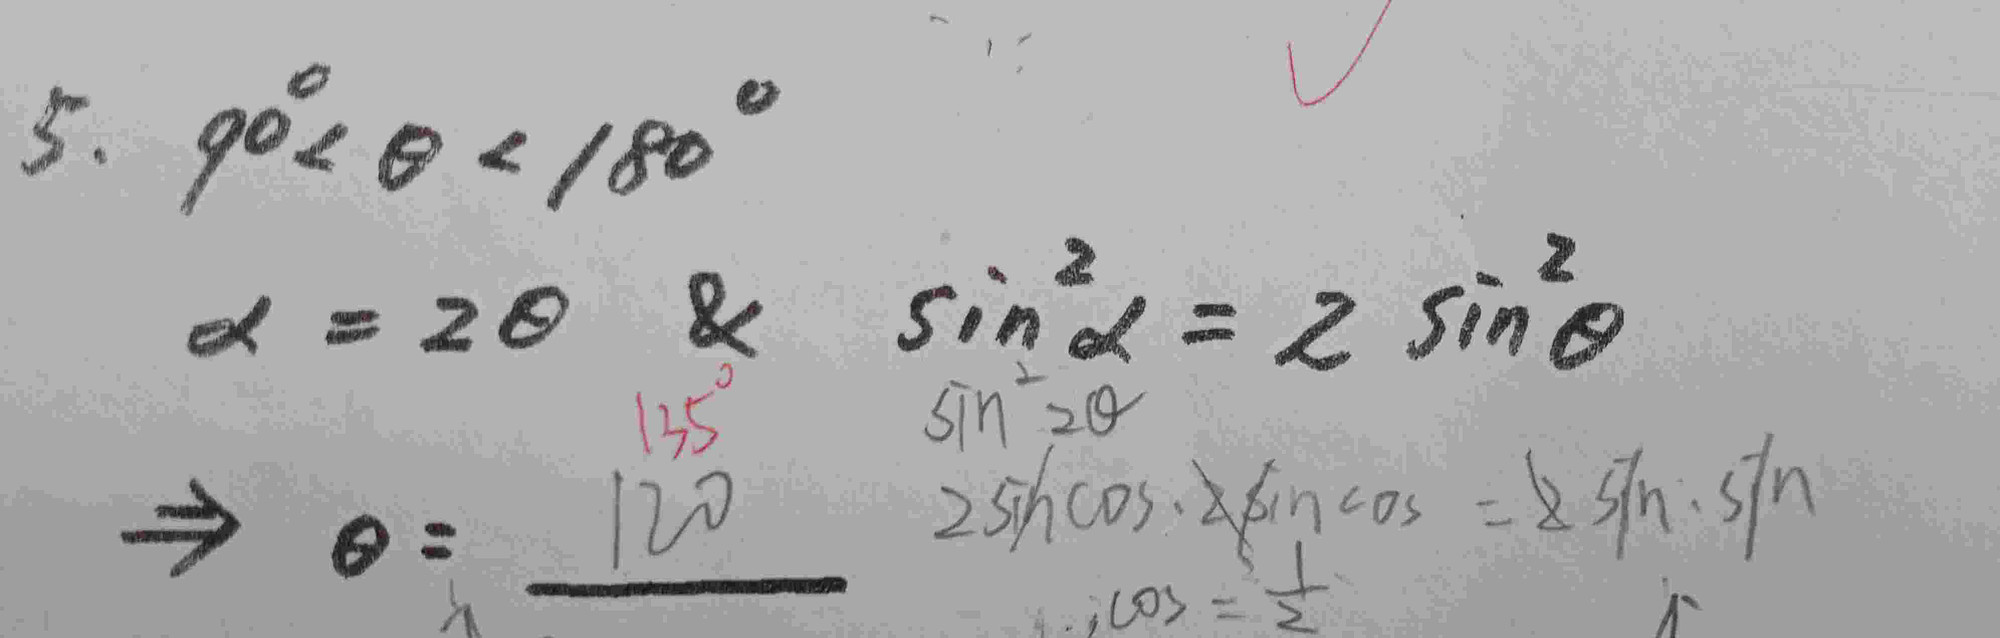 5. 90° < θ < 180°
α = 2θ & sin²α = 2 sin²θ
135° sin²2θ
⇒ θ = 120 2sincos·2sincos = 2sin·sin
∴ cos = 1/2